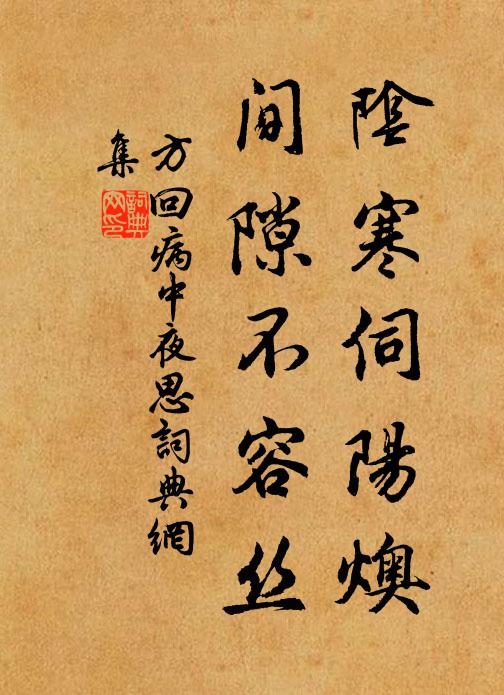 陰寒伺陽燠
間隙不容丝
方回病中夜思詞典網
集
詞典
网印